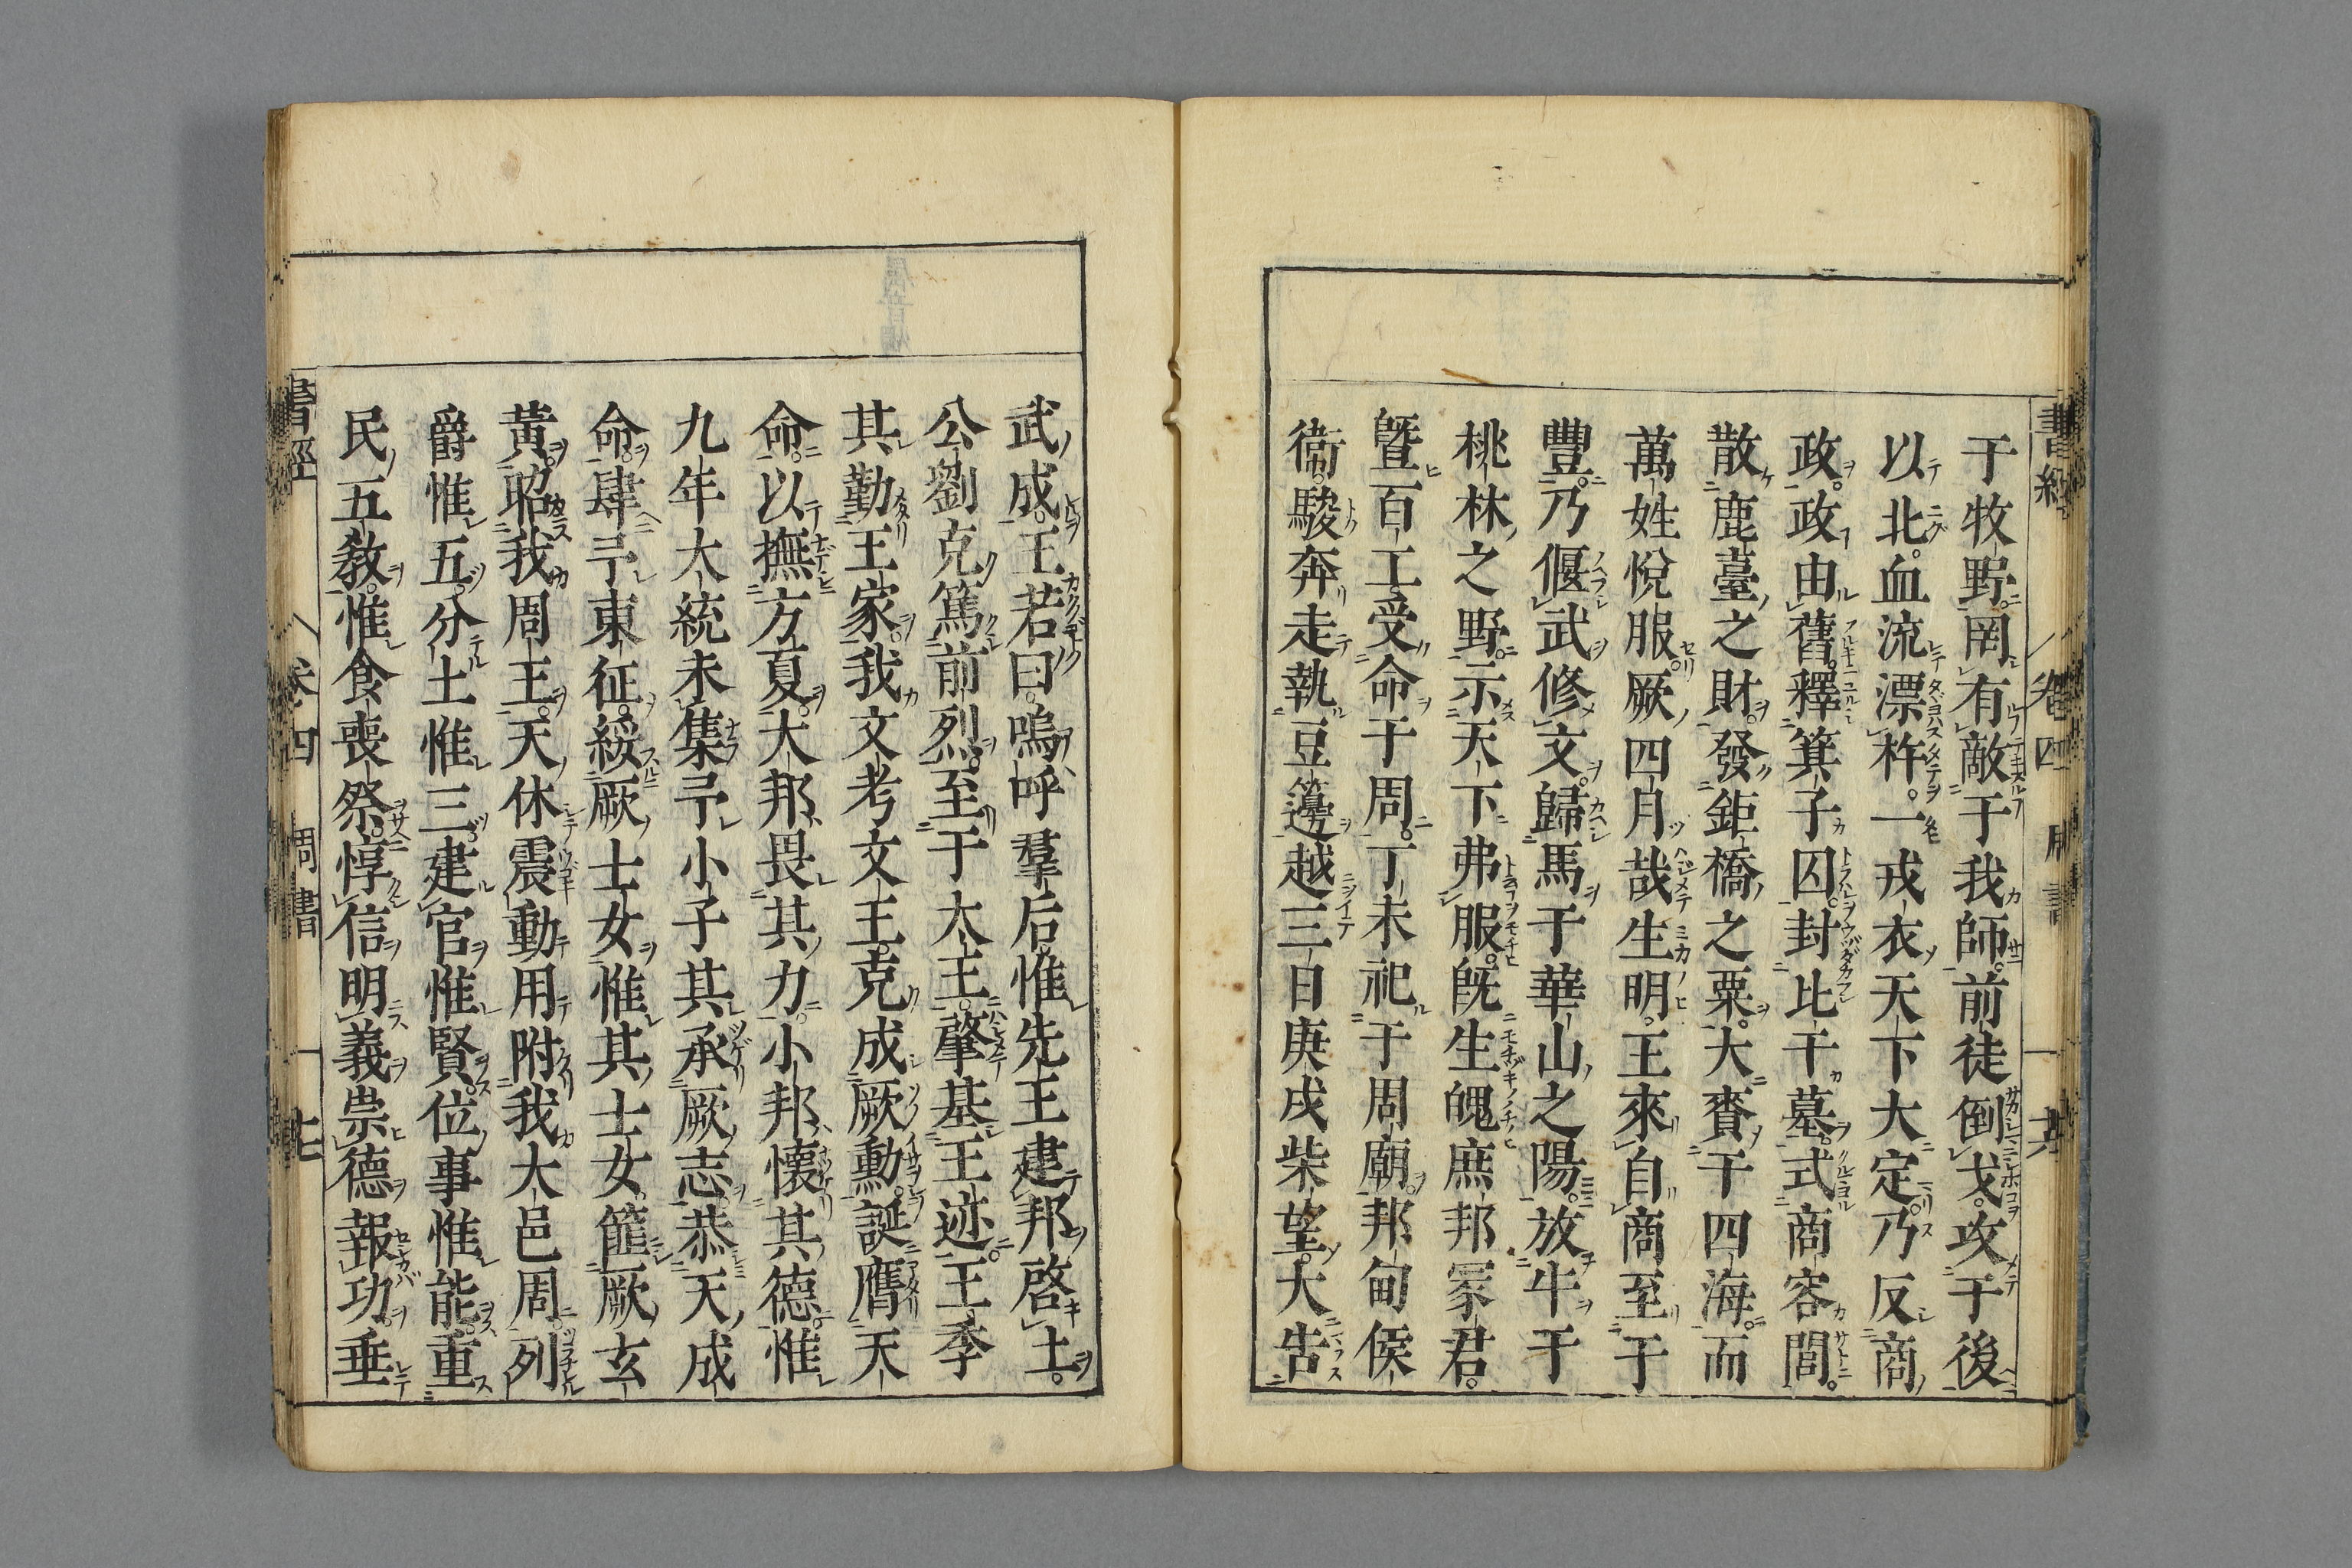 書經 卷四 周書 十六
于牧野。罔有敵于我師。前徒倒戈。攻于後
以北。血流漂杵。一戎衣天下大定。乃反商
政。政由舊。釋箕子囚。封比干墓。式商容閭。
散鹿臺之財。發鉅橋之粟。大賚于四海。而
萬姓悅服。厥四月哉生明。王來自商至于
豐。乃偃武修文。歸馬于華山之陽。放牛于
桃林之野。示天下弗服。旣生魄庶邦冢君。
曁百工受命于周。丁未祀于周廟。邦甸侯
衞。駿奔走執豆籩。越三日庚戌柴望。大告
武成。王若曰。嗚呼羣后惟先王建邦啓土。
公劉克篤前烈。至于大王。肇基王迹。王季
其勤王家。我文考文王。克成厥勳。誕膺天
命。以撫方夏。大邦畏其力。小邦懷其德。惟
九年大統未集。予小子其承厥志。恭天成
命。肆予東征。綏厥士女。惟其士女。篚厥玄
黃。昭我周王。天休震動。用附我大邑周。列
爵惟五。分土惟三。建官惟賢。位事惟能。重
民五敎。惟食喪祭。惇信明義。崇德報功。垂
書經 卷四 周書 十七